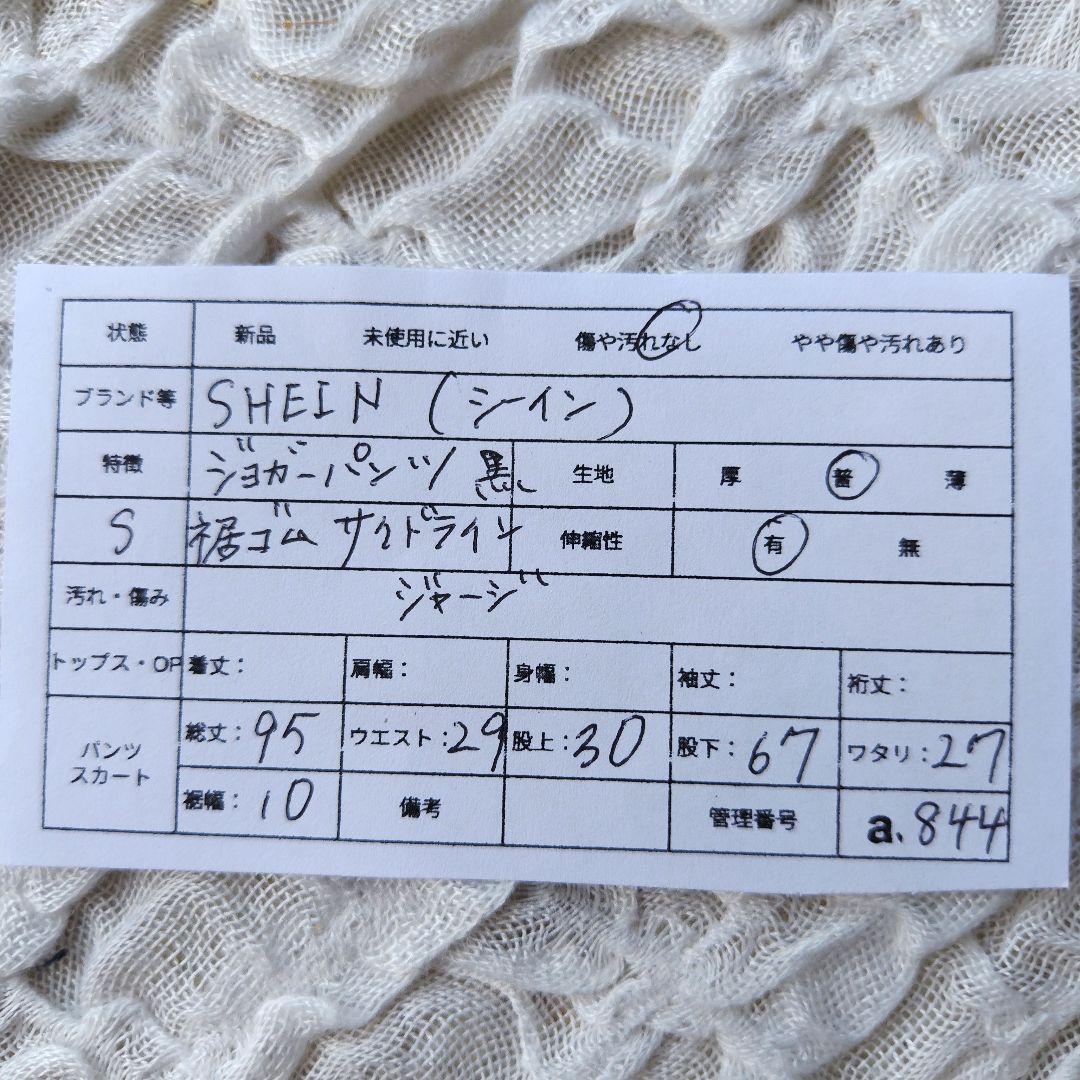 状態 新品 未使用に近い 傷や汚れなし やや傷や汚れあり
ブランド等 SHEIN (シーイン)
特徴 ジョガーパンツ 黒 生地 厚 普 薄
S 裾ゴム サイドライン 伸縮性 有 無
汚れ・傷み ジャージ
トップス・OP 着丈: 肩幅: 身幅: 袖丈: 裄丈:
パンツ スカート 総丈:95 ウエスト:29 股上:30 股下:67 ワタリ:27
裾幅:10 備考 管理番号 a.844